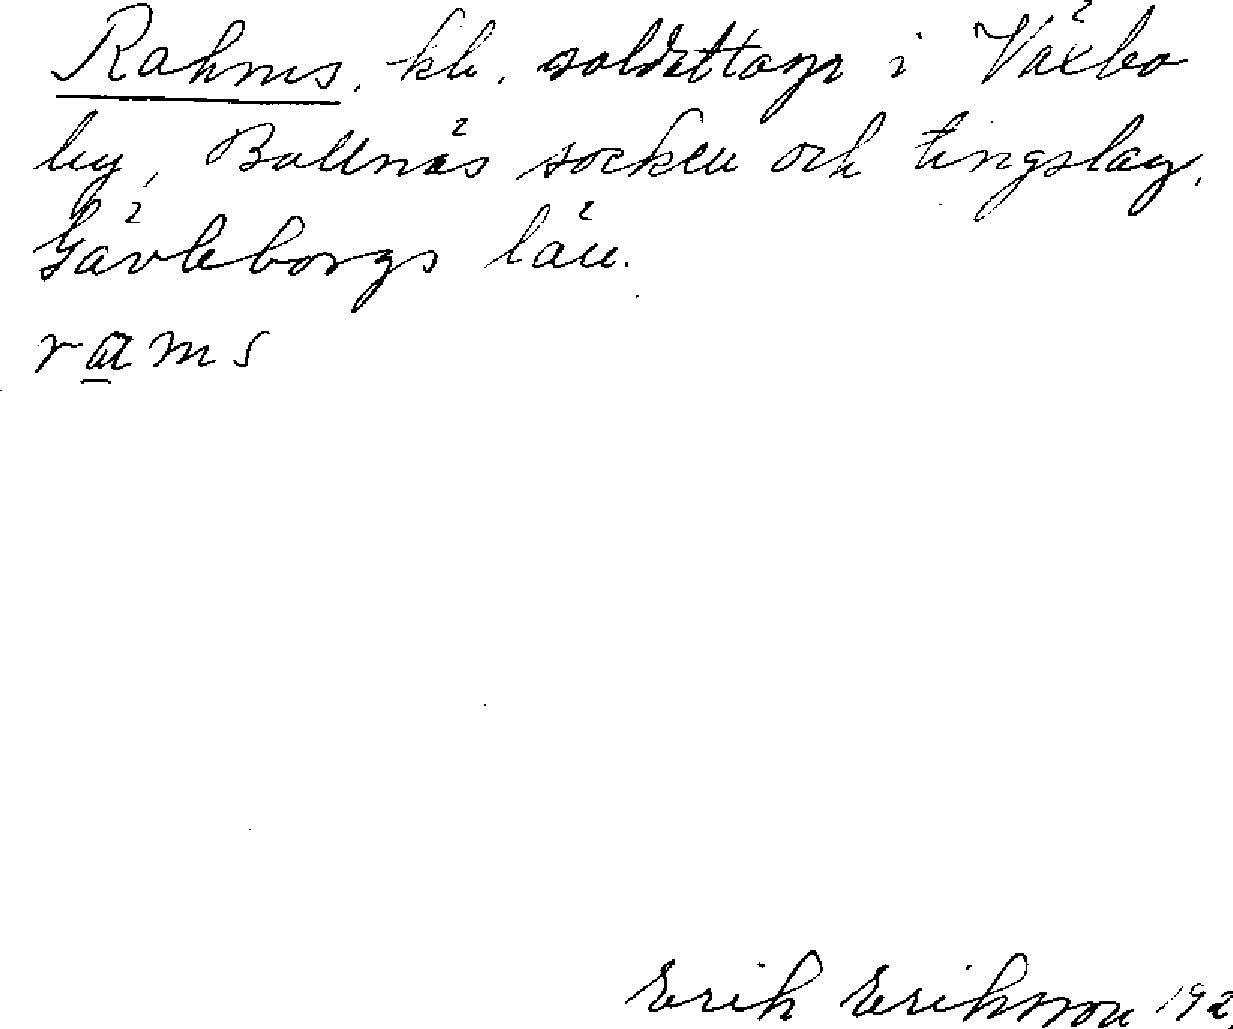 Rahms, kb. soldattorp i Växbo
by, Bollnäs socken och tingslag,
Gävleborgs län.
rams
Erik Eriksson 192